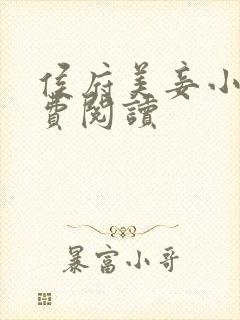 侯府美妾小
費閱讀
暴富小哥